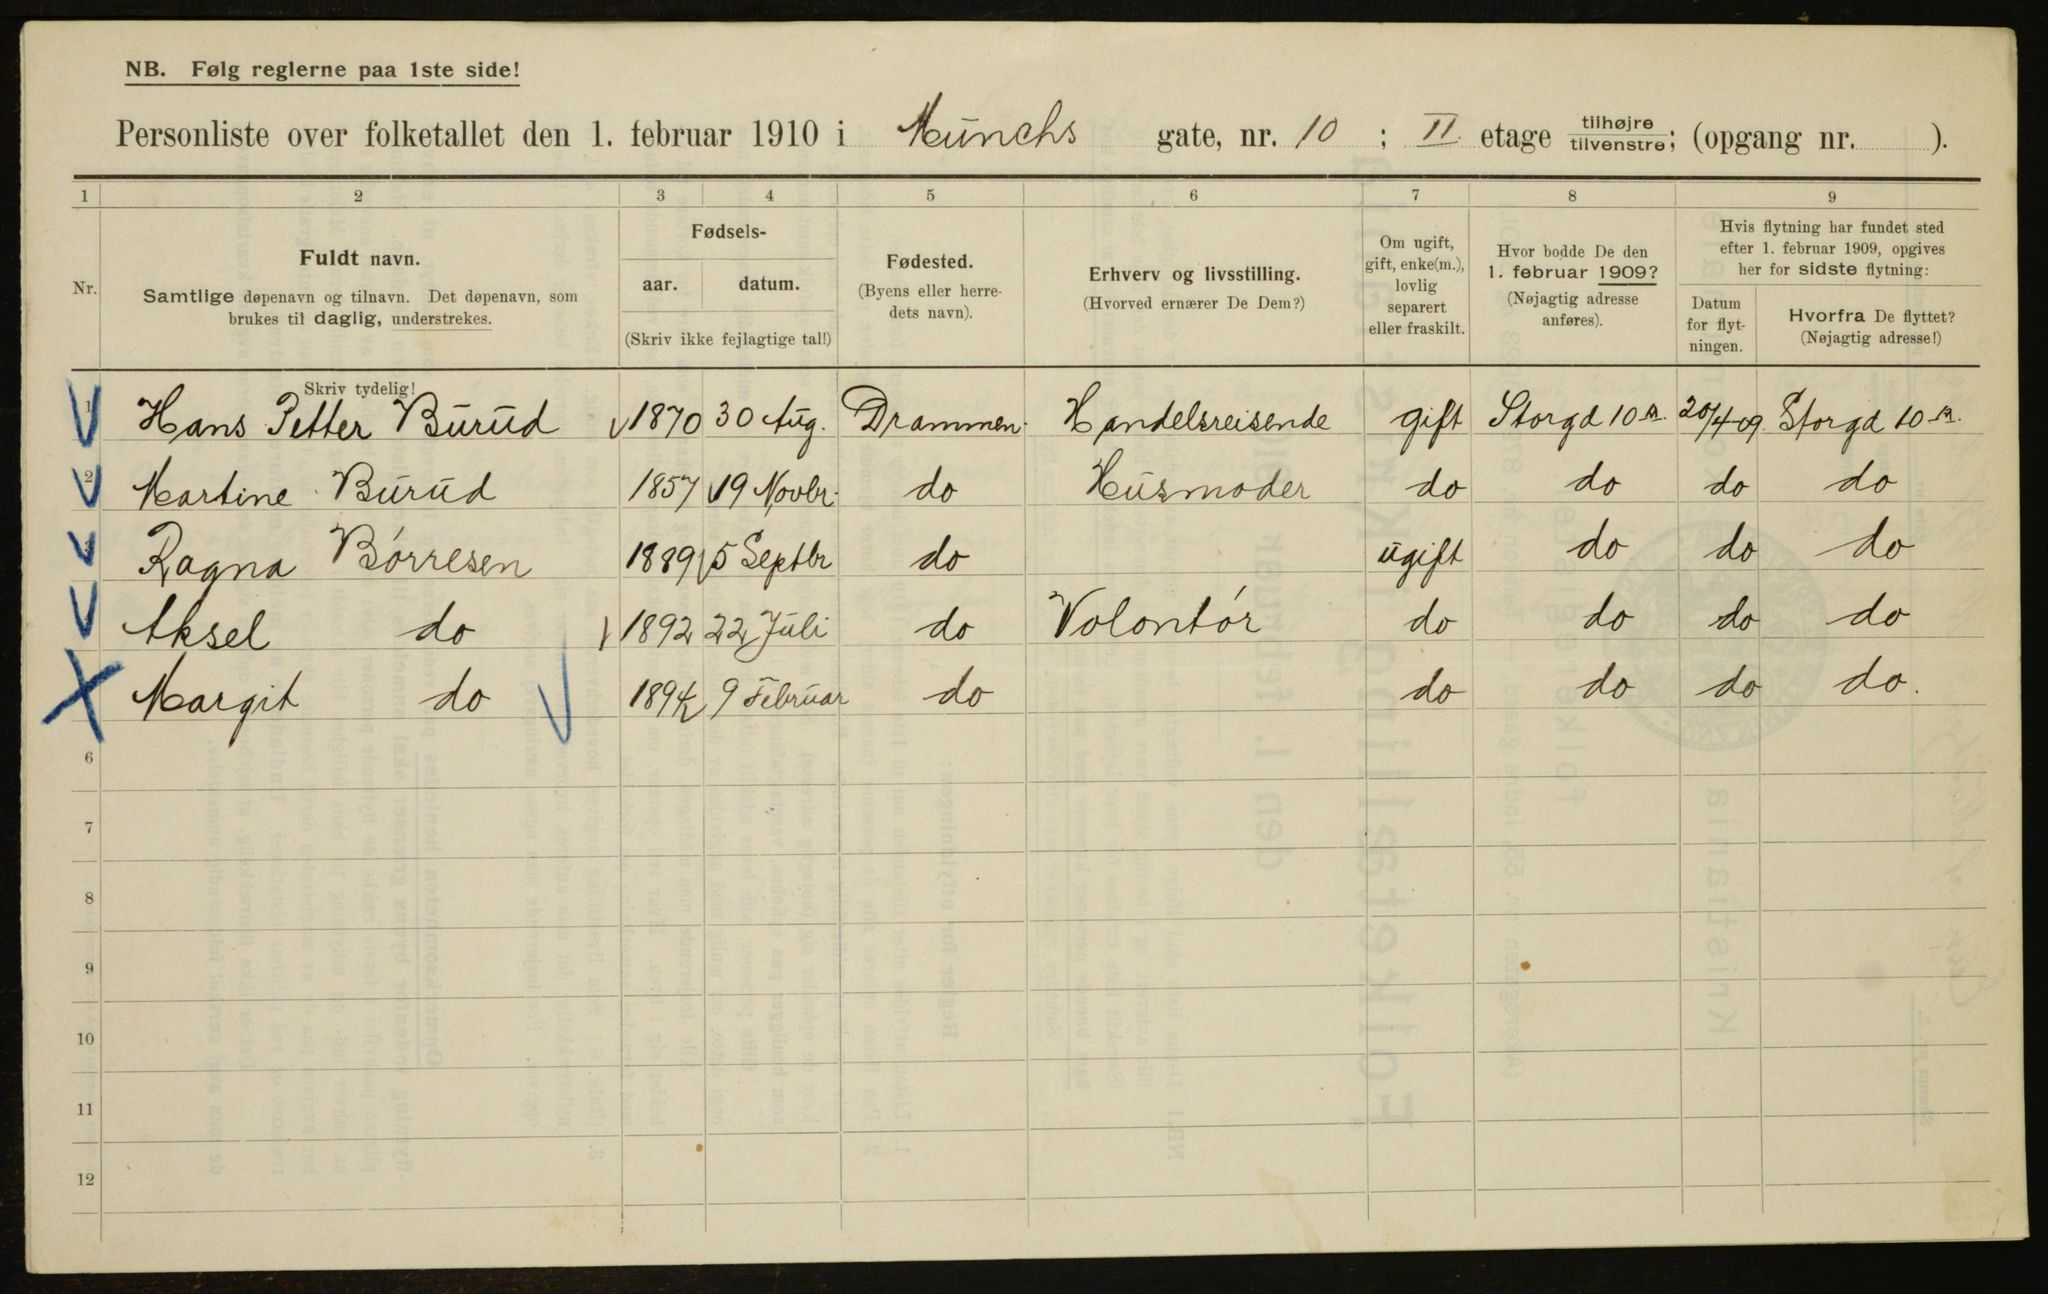 NB. Følg reglerne paa 1ste side!
Personliste over folketallet den 1. februar 1910 i Munchs gate, nr. 10 ; II etage tilhøjre/tilvenstre; (opgang nr. ).
1 2 3 4 5 6 7 8 9
Nr.
Fuldt navn.
Samtlige døpenavn og tilnavn. Det døpenavn, som
brukes til daglig, understrekes.
Fødsels-
aar. datum.
(Skriv ikke fejlagtige tal!)
Fødested.
(Byens eller herre-
dets navn).
Erhverv og livsstilling.
(Hvorved ernærer De Dem?)
Om ugift,
gift, enke(m.),
lovlig
separert
eller fraskilt.
Hvor bodde De den
1. februar 1909?
(Nøjagtig adresse
anføres).
Hvis flytning har fundet sted
efter 1. februar 1909, opgives
her for sidste flytning:
Datum
for flyt-
ningen.
Hvorfra De flyttet?
(Nøjagtig adresse!)
Skriv tydelig!
1 Hans Petter Burud 1870 30 Aug. Drammen Handelsreisende gift Storgd 10 20/4-09 Storgd 10
2 Martine Burud 1857 19 Novbr. do Husmoder do do do do
3 Ragna Børresen 1889 5 Septbr do ugift do do do
Aksel do 1892 22 Juli do Volontør do do do do
Margit do 1894 9 Februar do do do do do.
6
7
8
9
10
11
12